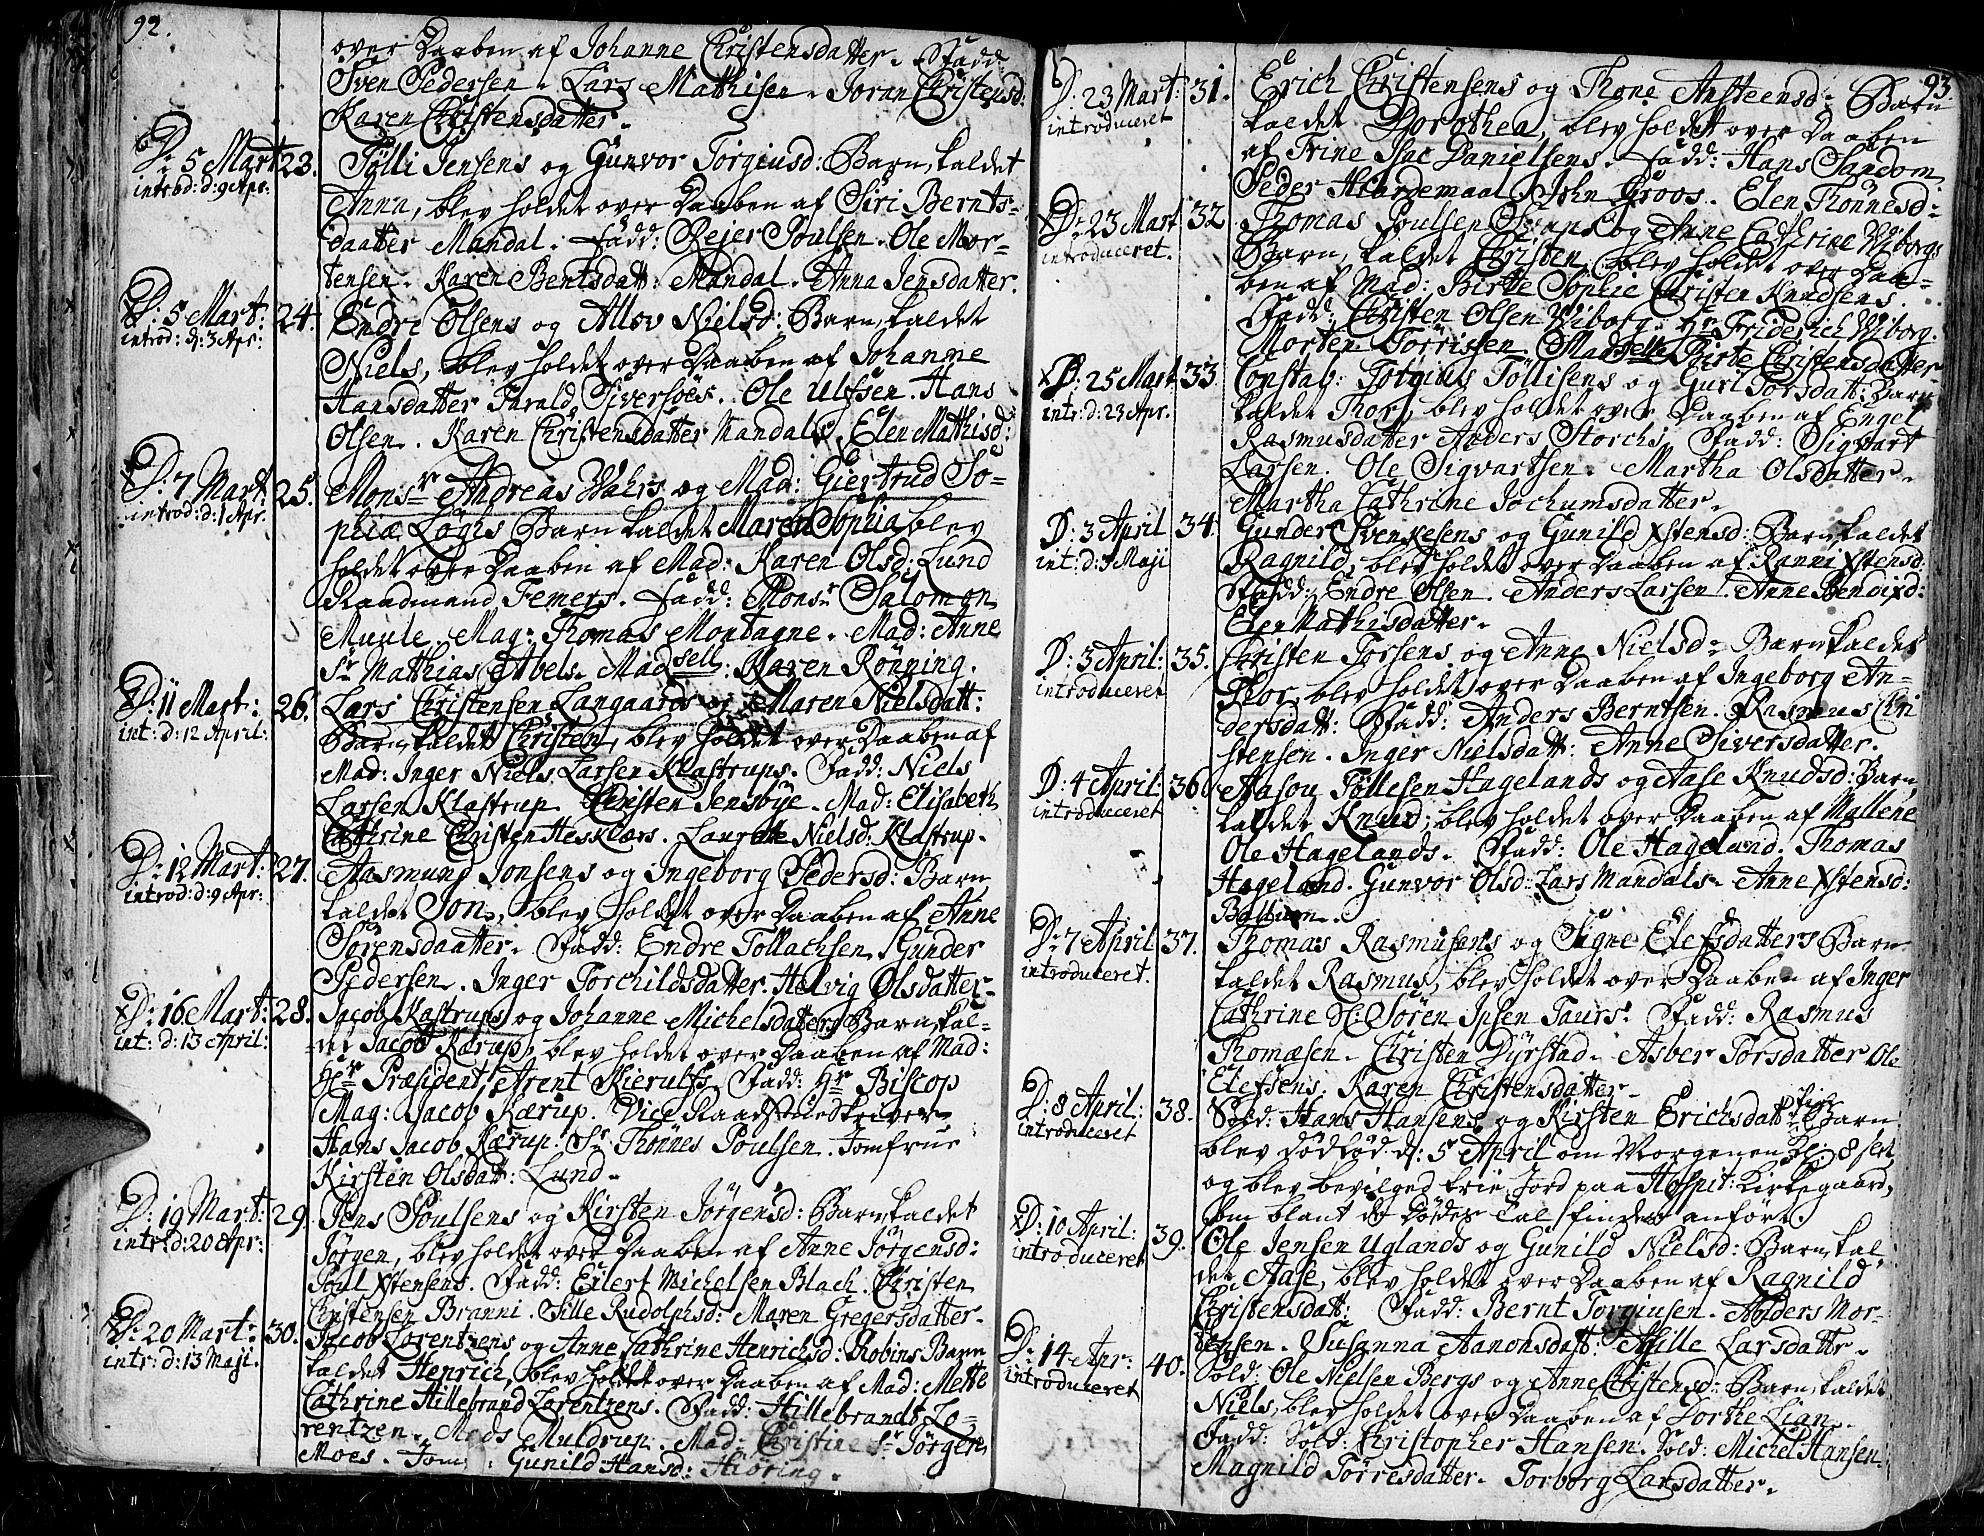 92.
over Daaben af Johanne Christensdatter. Fadd:
Sven Pedersen. Lars Mathisen. Joran Christensd:
Karen Christensdatter.
D: 5 Mart: 23. Tölli Jensens og Gunvor Torgiusd: Barn, kaldet
introd: d: 9 Apr:
Anna, blev holdet over Daaben af Siri Bernts-
daatter Mandal. Fadd: Rejer Poulsen. Ole Mor-
tensen. Karen Bentsdatt: Mandal. Anna Jensdatter.
D: 5 Mart: 24. Endre Olsens og Allov Nielsd: Barn, kaldet
introd: d: 3 Apr:
Niels, blev holdet over Daaben af Johanne
Hansdatter Harald Siversöes. Ole Ulfsen. Hans
Olsen. Karen Christensdatter Mandals, Elen Mathisd:
D: 7 Mart: 25. Monsr Andreas Wahrs og Mad: Giertrud So-
introd: d: 1 Apr.
phiæ Löghs Barn kaldet Maren Sophia, blev
holdet over Daaben af Mad: Karen Olsd: Lund
Raadmand Femers. Fadd: Monsr Salomon
Muule. Mag: Thomas Montagne. Mad: Anne
Sr Mathias Abels. Madsell: Karen Rönning.
D: 11 Mart: 26. Lars Christensen Langaards og Maren Nielsdatt:
int: d: 12 April:
Barn, kaldet Christen, blev holdet over Daaben af
Mad: Inger Niels Larsen Klastrups. Fadd: Niels
Larsen Klastrup. Christen Jensbye. Mad: Elisabeth
Cathrine Christen Hesklærs. Laurette Nielsd: Klastrup.
D: 12 Mart: 27. Aasmund Jonsens og Ingeborg Pedersd: Barn
introd: d: 9 Apr:
kaldet Jon, blev holdet over Daaben af Anne
Sörensdaatter. Fadd: Endre Tollachsen. Gunder
Pedersen. Inger Torchildsdatter. Helvig Olsdatter.
D: 16 Mart: 28. Jacob Kastrups og Johanne Michelsdatters Barn, kal-
int: d: 13 April:
det Jacob Kærup, blev holdet over Daaben af Mad:
Hr Præsident Arent Kierulfs. Fadd: Hr Biscop
Mag: Jacob Kærup. Vice Raadstueskriver
Hans Jacob Kærup. Sr Thönnes Poulsen. Jomfrue
Kirsten Olsdatt: Lund.
D: 19 Mart: 29. Jens Poulsens og Kirsten Jörgensd: Barn, kaldet
intr: d: 20 Apr:
Jörgen, blev holdet over Daaben af Anne Jörgensd:
Poul Xstensens. Fadd: Eilert Michelsen Blach. Christen
Christensen Branni. Sille Rudolphsd: Maren Gregersdatter.
D: 20 Mart: 30. Jacob Lorentzens og Anne Cathrine Henrichsd: Robins Barn
intr: d: 13 Maji.
kaldet Henrich, blev holdet over Daaben af Mad: Mette
Cathrine Hillebrand Lorentzens. Fadd: Hillebrandt Lo-
rentzen. Mads Muldrup. Mad: Christine Sr Jörgen
Moes. Jom: Gunild Hansd: Hiöring.
93
D: 23 Mart: 31. Erich Christensens og Thone Ansteensd: Barn
introduceret
kaldet Dorothea, blev holdet over Daaben
af Trine Isac Danielsens. Fadd: Hans Sandom
Peder Hiardemaal. John Groos. Elen Thönnesd:
D: 23 Mart 32. Thomas Poulsen Svane og Anne Cathrine Wiborgs
introduceret.
Barn, kaldet Christen, blev holdet over Daa-
ben af Mad: Birte Sophie Christen Knudsens.
Fadd: Christen Olsen Wiborg. Hr Friderich Wiborg.
Morten Törrissen. Madselle Birte Christensdatter
D: 25 Mart 33. Constab: Torgius Töllisens og Guri Torsdatt: Barn
intr: d: 23 Apr.
kaldet Thor, blev holdet over Daaben af Engel
Rasmusdatter Anders Storchs. Fadd: Sigvart
Larsen. Ole Sigvartsen. Martha Olsdatter.
Martha Cathrine Jochumsdatter.
D: 3 April 34. Gunder Svenkesens og Gunild Xstensd: Barn, kaldet
int: d: 3 Maji
Ragnild, blev holdet over Daaben af Ranni Xstensd:
Fadd: Endre Olsen. Anders Larsen. Anne Bendixd:
Elen Mathisdatter.
D: 3 April: 35. Christen Torsens og Anne Nielsd: Barn, kaldet
introduceret
Thor, blev holdet over Daaben af Ingeborg An-
dersdatt: Fadd: Anders Berntsen. Rasmus Chri
stensen. Inger Nielsdatt: Anne Siversdatter.
D: 4 April: 36. Aasou Töllesen Hagelands og Aase Knudsd: Barn,
introduceret
kaldet Knud, blev holdet over Daaben af Mallene
Ole Hagelands. Fadd: Ole Hageland. Thomas
Hageland. Gunvor Olsd: Lars Mandals. Anne Xstensd:
Baltium.
D: 7 April 37. Thomas Rasmusens og Signe Elefsdatters Barn
introduceret.
kaldet Rasmus, blev holdet over Daaben af Inger
Cathrine Sr: Sören Ipsen Taurs. Fadd: Rasmus
Thomæsen. Christen Dyrstad. Asber Torsdatter Ole
Elefsens. Karen Christensdatter.
D: 8 April: 38. Sold: Hans Hansens og Kirsten Erichsdatt: Barn
introduceret
blev dödföd d: 5 April om Morgenen Kl: 8 slet,
og blev bevilged frie Jord paa Hospit: Kirkegaard,
som blant de Dödes Tal findes anfört.
D: 10 April: 39. Ole Jensen Uglands og Gunild Nielsd: Barn, kal
introduceret
det Aase, blev holdet over Daaben af Ragnild
Christensdatt: Fadd: Bernt Torgiusen. Anders Mor-
tensen. Susanna Aanonsdatt: Mille Larsdattr.
D: 14 Apr: 40. Sold: Ole Nielsen Bergs og Anne Christensd: Barn, kaldet
introduceret
Niels, blev holdet over Daaben af Dorthe Lian.
Fadd: Sold: Christopher Hansen. Sold: Michel Hansen.
Magnild Törresdatter. Torborg Larsdatter.